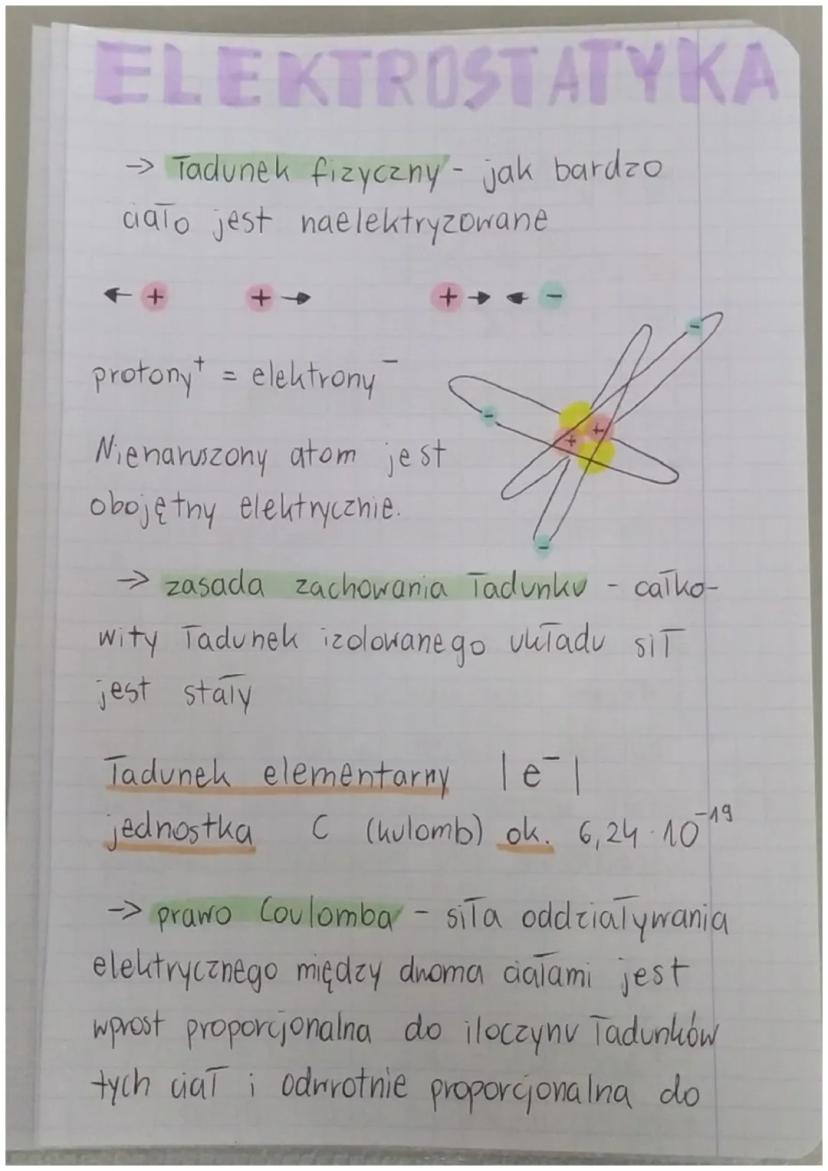 ELEKTROSTATYKA
→ Ładunek fizyczny - jak bardzo
ciało jest naelektryzowane
← + + → + → ← -
protony⁺ = elektrony⁻
Nienaruszony atom jest
obojętny elektrycznie.
→ zasada zachowania ładunku - całko-
wity ładunek izolowanego układu sił
jest stały
Ładunek elementarny |e⁻|
jednostka C (kulomb) ok. 6,24 · 10⁻¹⁹
→ prawo Coulomba - siła oddziaływania
elektrycznego między dwoma ciałami jest
wprost proporcjonalna do iloczynu ładunków
tych ciał i odwrotnie proporcjonalna do